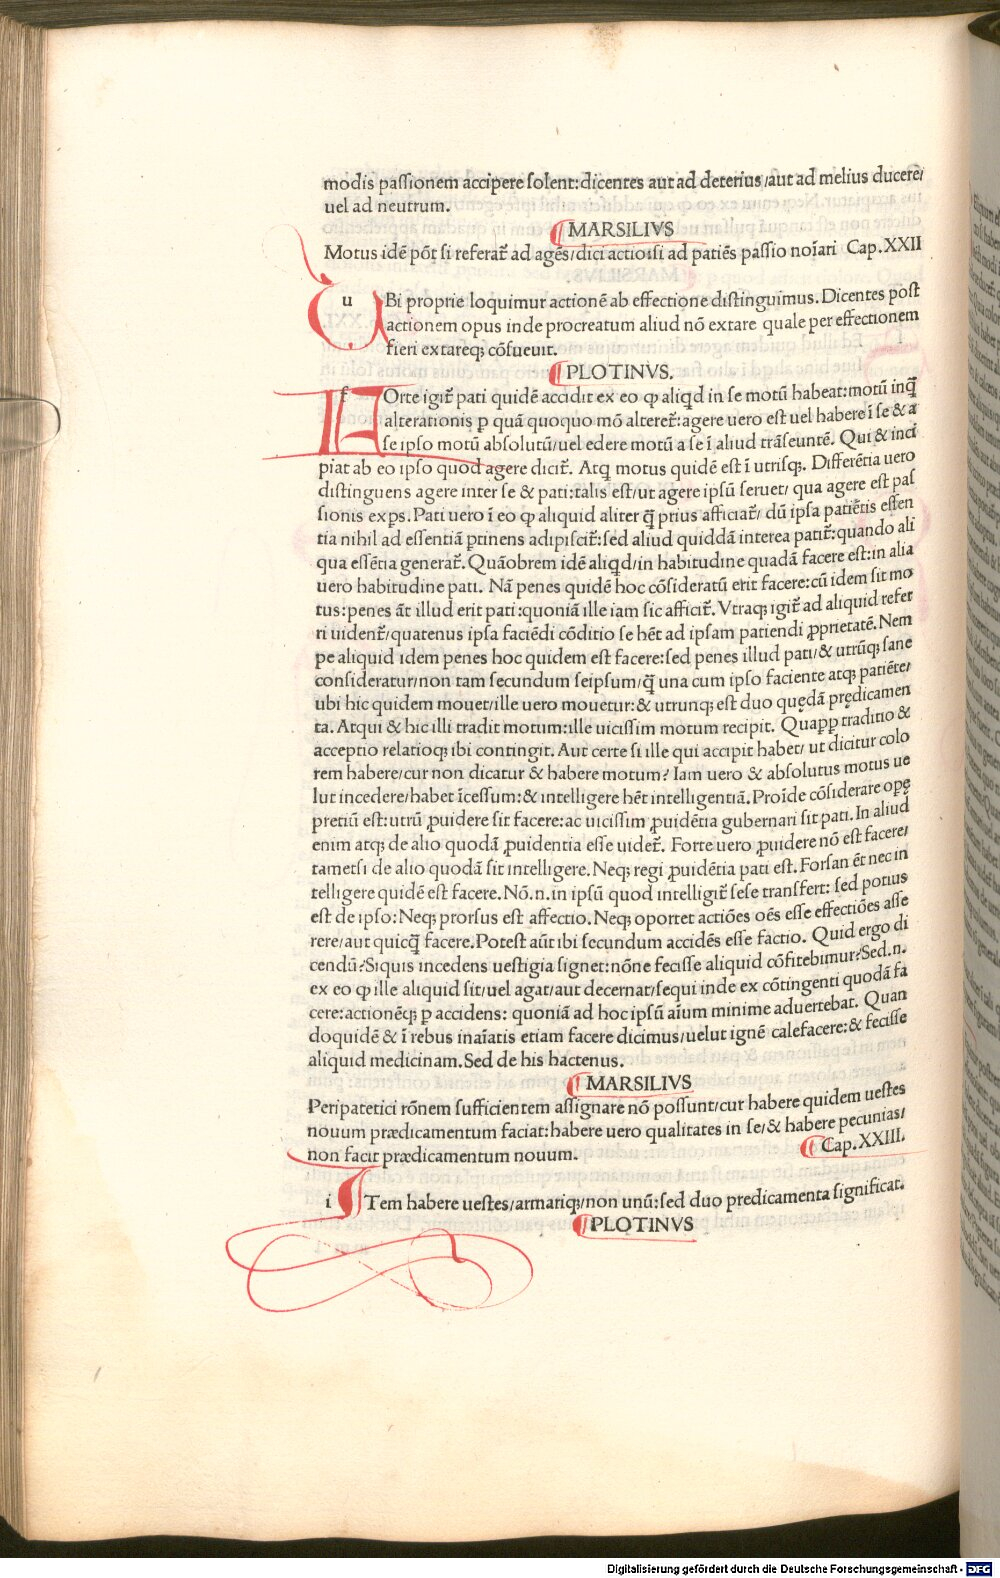 modis passionem accipere solent: dicentes aut ad deterius/aut ad melius ducere/
uel ad neutrum.
MARSILIVS
Motus idē põt si referat̃ ad agēs/dici actio: si ad patiēs passio noĩari Cap.XXII
u Bi proprie loquimur actionē ab effectione distinguimus. Dicentes post
actionem opus inde procreatum aliud nō extare quale per effectionem
fieri extareqꝫ cōsueuit.
PLOTINVS.
f Orte igit̃ pati quidē accidit ex eo ꝙ aliqd in se motū habeat: motū inq̄
alterationis ꝑ quā quoquo mō alteret̃: agere uero est uel habere ĩ se & a
se ipso motū absolutū/uel edere motū a se ĩ aliud trāseuntē. Qui & inci
piat ab eo ipso quod agere dicit̃. Atqꝫ motus quidē est ĩ utrisqꝫ. Differētia uero
distinguens agere inter se & pati: talis est/ut agere ipsū seruet/ qua agere est pas
sionis exps. Pati uero ĩ eo ꝙ aliquid aliter q̄ prius afficiat̃/ dū ipsa patiētis essen
tia nihil ad essentiā ꝑtinens adipiscit̃: sed aliud quiddā interea patit̃: quando ali
qua essētia generat̃. Quāobrem idē aliqd/in habitudine quadā facere est: in alia
uero habitudine pati. Nā penes quidē hoc cōsideratū erit facere: cū idem sit mo
tus: penes āt illud erit pati: quoniā ille iam sic afficit̃. Vtraqꝫ igit̃ ad aliquid refer
ri uident̃/quatenus ipsa faciēdi cōditio se hēt ad ipsam patiendi ꝓprietatē. Nem
pe aliquid idem penes hoc quidem est facere: sed penes illud pati/& utrūqꝫ sane
consideratur/non tam secundum seipsum/q̄ una cum ipso faciente atqꝫ patiēte/
ubi hic quidem mouet/ille uero mouetur: & utrunqꝫ est duo quędā prędicamen
ta. Atqui & hic illi tradit motum: ille uicissim motum recipit. Quaꝓꝑ traditio &
acceptio relatioqꝫ ibi contingit. Aut certe si ille qui accipit habet/ ut dicitur colo
rem habere/cur non dicatur & habere motum? Iam uero & absolutus motus ue
lut incedere/habet ĩcessum: & intelligere hēt intelligentiā. Proĩde cōsiderare opę
pretiū est: utrū ꝓuidere sit facere: ac uicissim ꝓuidētia gubernari sit pati. In aliud
enim atqꝫ de alio quodā ꝓuidentia esse uidet̃. Forte uero ꝓuidere nō est facere/
tametsi de alio quodā sit intelligere. Neqꝫ regi ꝓuidētia pati est. Forsan ēt nec in
telligere quidē est facere. Nō.n.in ipsū quod intelligit̃ sese transfert: sed potius
est de ipso: Neqꝫ prorsus est affectio. Neqꝫ oportet actiōes oēs esse effectiōes asse
rere/aut quicq̄ facere. Potest aūt ibi secundum accidēs esse factio. Quid ergo di
cendū? Siquis incedens uestigia signet: nōne fecisse aliquid cōfitebimur? Sed.n.
ex eo ꝙ ille aliquid sit/uel agat/aut decernat/sequi inde ex cōtingenti quodā fa
cere: actionēqꝫ ꝑ accidens: quoniā ad hoc ipsū aĩum minime aduertebat. Quan
doquidē & ĩ rebus inaĩatis etiam facere dicimus/uelut ignē calefacere: & fecisse
aliquid medicinam. Sed de his hactenus.
MARSILIVS
Peripatetici rōnem sufficientem assignare nō possunt/cur habere quidem uestes
nouum prædicamentum faciat: habere uero qualitates in se/& habere pecunias/
non facit prædicamentum nouum. Cap.XXIII.
i Tem habere uestes/armariqꝫ/non unū: sed duo predicamenta significat.
PLOTINVS
Digitalisierung gefördert durch die Deutsche Forschungsgemeinschaft - DFG